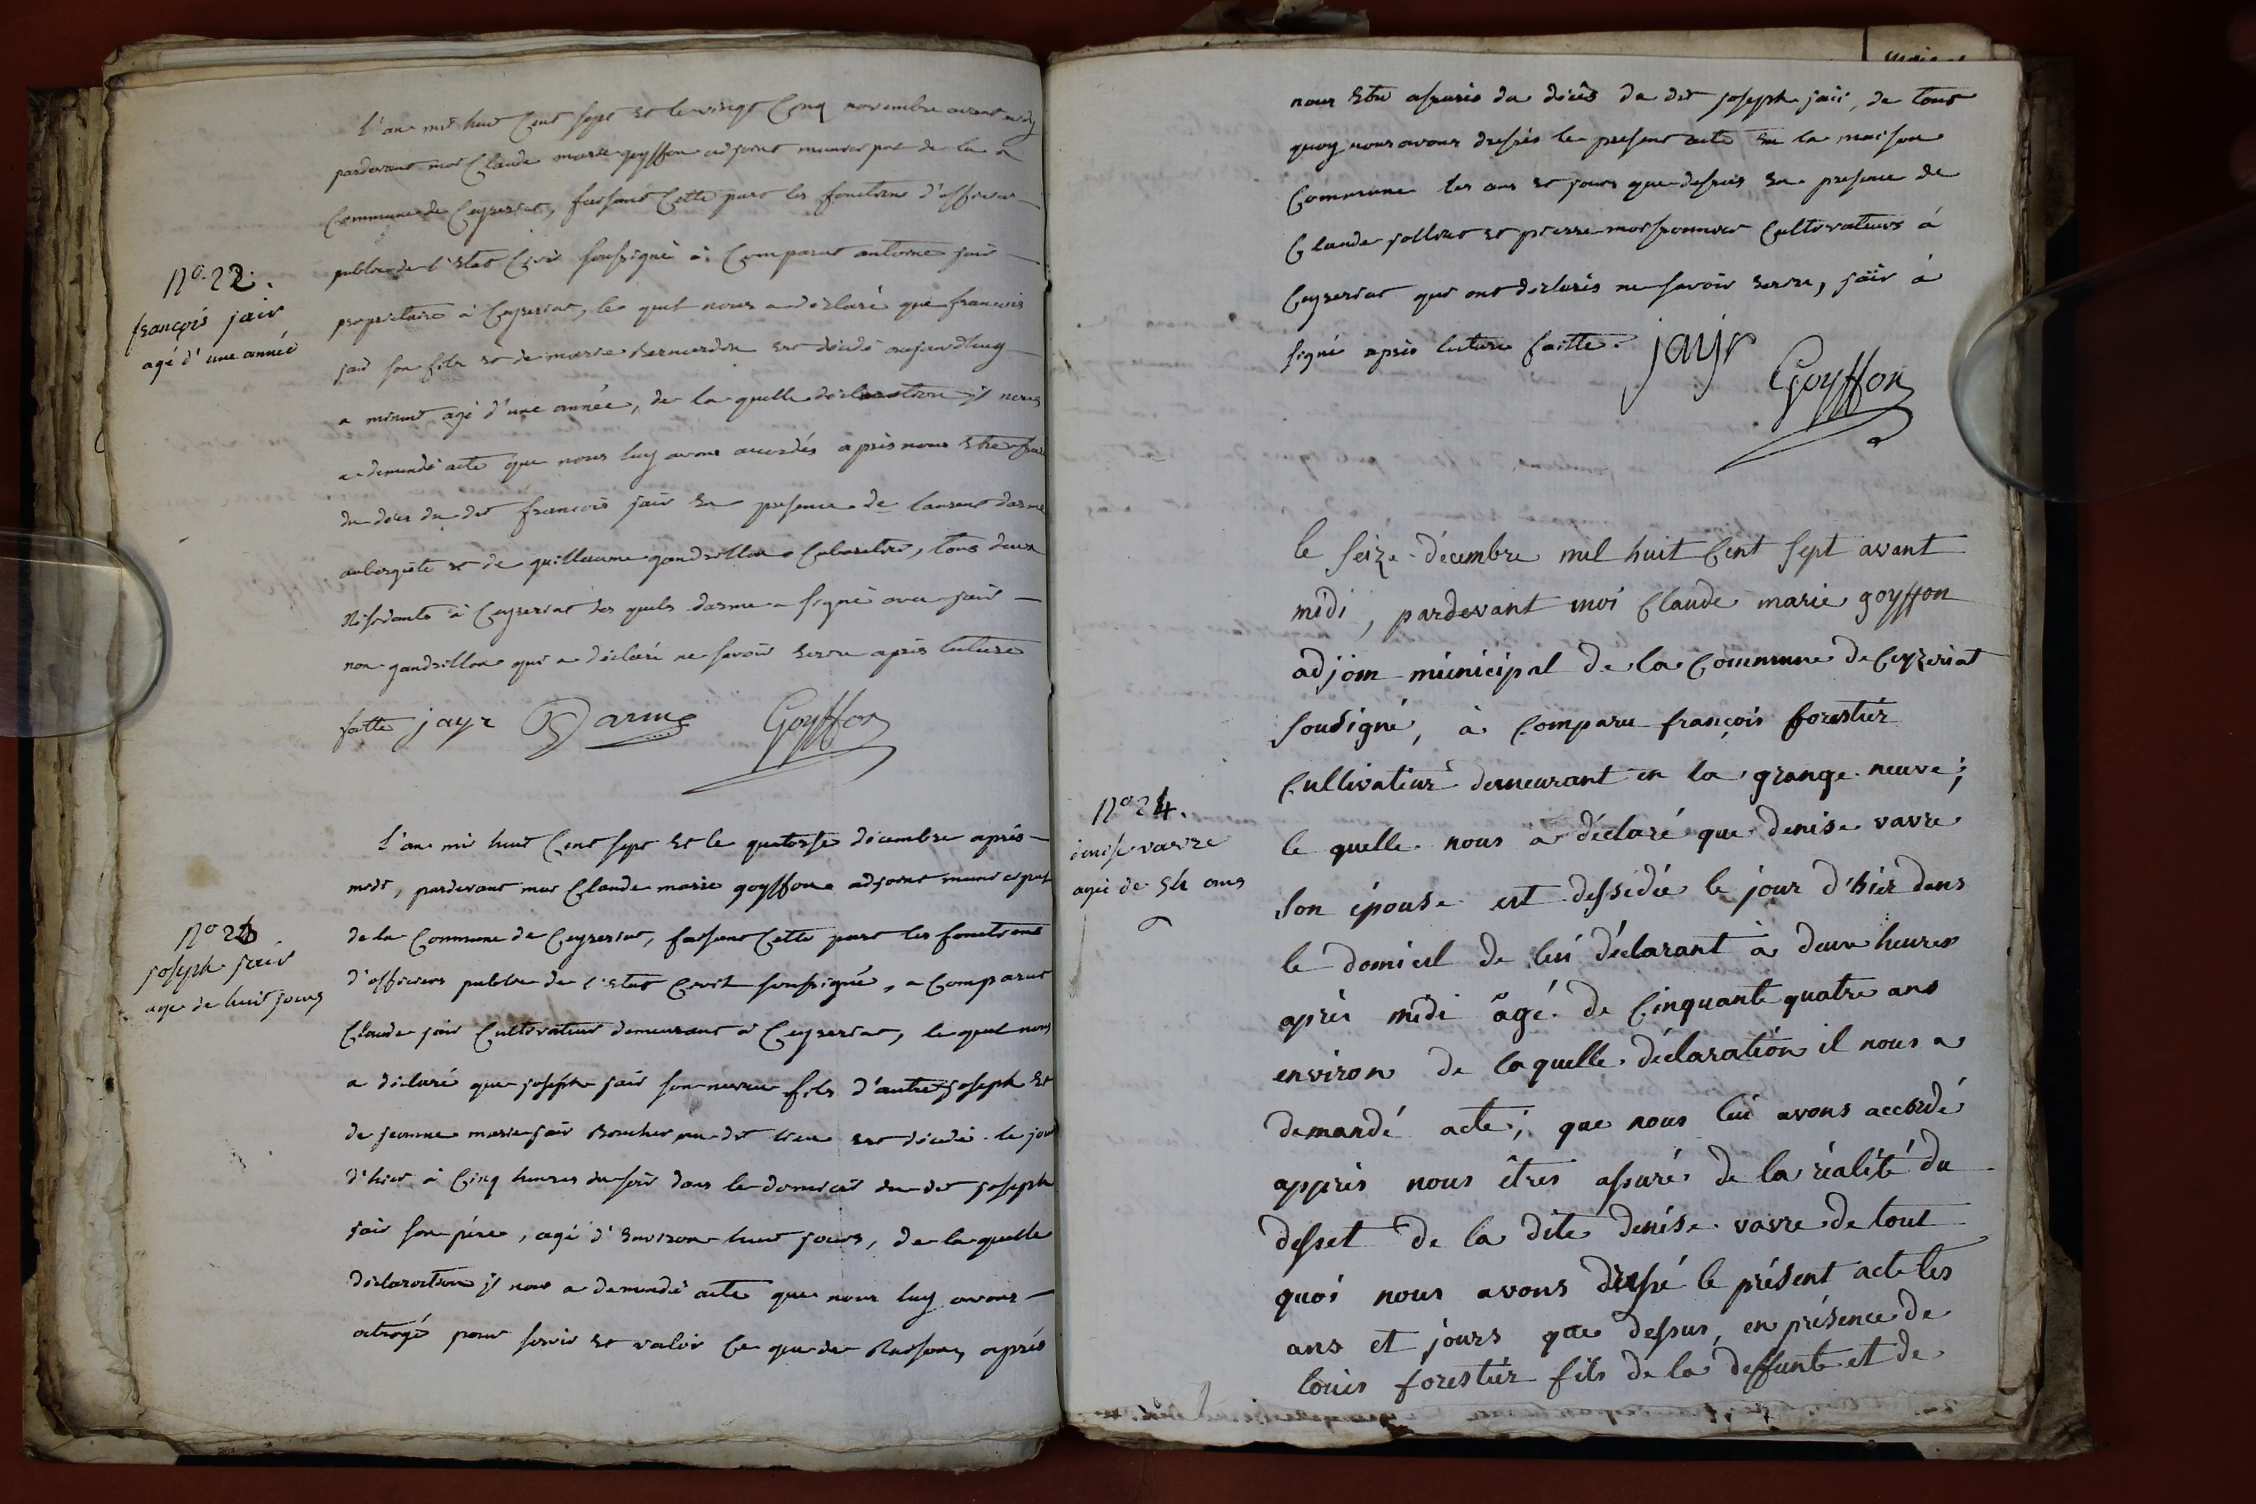 l'an mil huit Cent sept et le vingt Cinq novembre avant midy
pardevant moi Claude marie goyffon adjoint municipal de la
Commune de Ceyzeriat, faisant Cette part les fonctions d'officier
public de l'Etat Civil soussigné à Comparut antoine jair
propriétaire à Ceyzeriat, le quel nous a déclaré que francois
jair son fils et de marie Bernardin est décédé aujourdhuy
a minuit agé d'une année, de la quelle déclaration il nous
a demandé acte que nous luy avons accordés après nous Etre
du décés du dit francois jair En presence de laurent darme
aubergiste et de guillaume gandrillon Cabaretier, tous deux
Résidants à Ceyzeriat des quels darme a signé avec jair
non gandrillon qui a déclaré ne savoir Ecrire après lecture
faitte jayr Darme Goyffon
N° 22.
françois jair
agé d'une année
l'an mil huit Cent sept et le quatorse décembre après
midi, pardevant moi Claude marie goyffon adjoint municipal
de la Commune de Ceyzeriat, faisant Cette part les fonctions
d'officiers public de l'Etat Civil soussigné, a Comparut
Claude jair Cultivateur demeurant à Ceyzeriat, le quel nous
a déclaré que joseph jair son neveu fils d'autre joseph et
de jeanne marie jair Boucher au dit lieu est décédé le jour
d'hier à Cinq heures du soir dans le domicil du dit joseph
jair son père, agé d'Environ huit jours, de la quelle
déclaration il nous a demandé acte que nous luy avons
octroyé pour servir et valoir Ce que de Raison, après
N° 23
joseph jair
agé de huit jours
nous Etre assurés du décès du dit joseph jair, de tout
quoy nous avons dressés le présent acte En la maison
Commune les ans et jours que dessus En presence de
Claude jolliet et pierre moissonnier Cultivateurs à
Ceyzeriat qui ont déclarés ne savoir Ecrire, jair à
signé après lecture faitte. jayr Goyffon
le seize décembre mil huit Cent sept avant
midi, pardevant moi Claude marie goyffon
adjoin municipal de la Commune de Ceyzeriat
sousigné, à Comparu françois forestiér
Cultivateur demeurant en la grange neuve;
le quelle nous a déclaré que denise vavre
son épouse est dessédée le jour d'hiér dans
le domicil de lui déclarant à deux heures
après midi âgé de Cinquante quatre ans
environ de laquelle déclaration il nous a
demandé acte, que nous lui avons accordé
apprés nous êtres assuré de la réalité du
desset de la dite denise vavre de tout
quoi nous avons dressé le présent acte les
ans et jours que dessus, en présence de
louis forestiér fils de la deffunte et de
N° 24.
denise vavre
agée de 54 ans